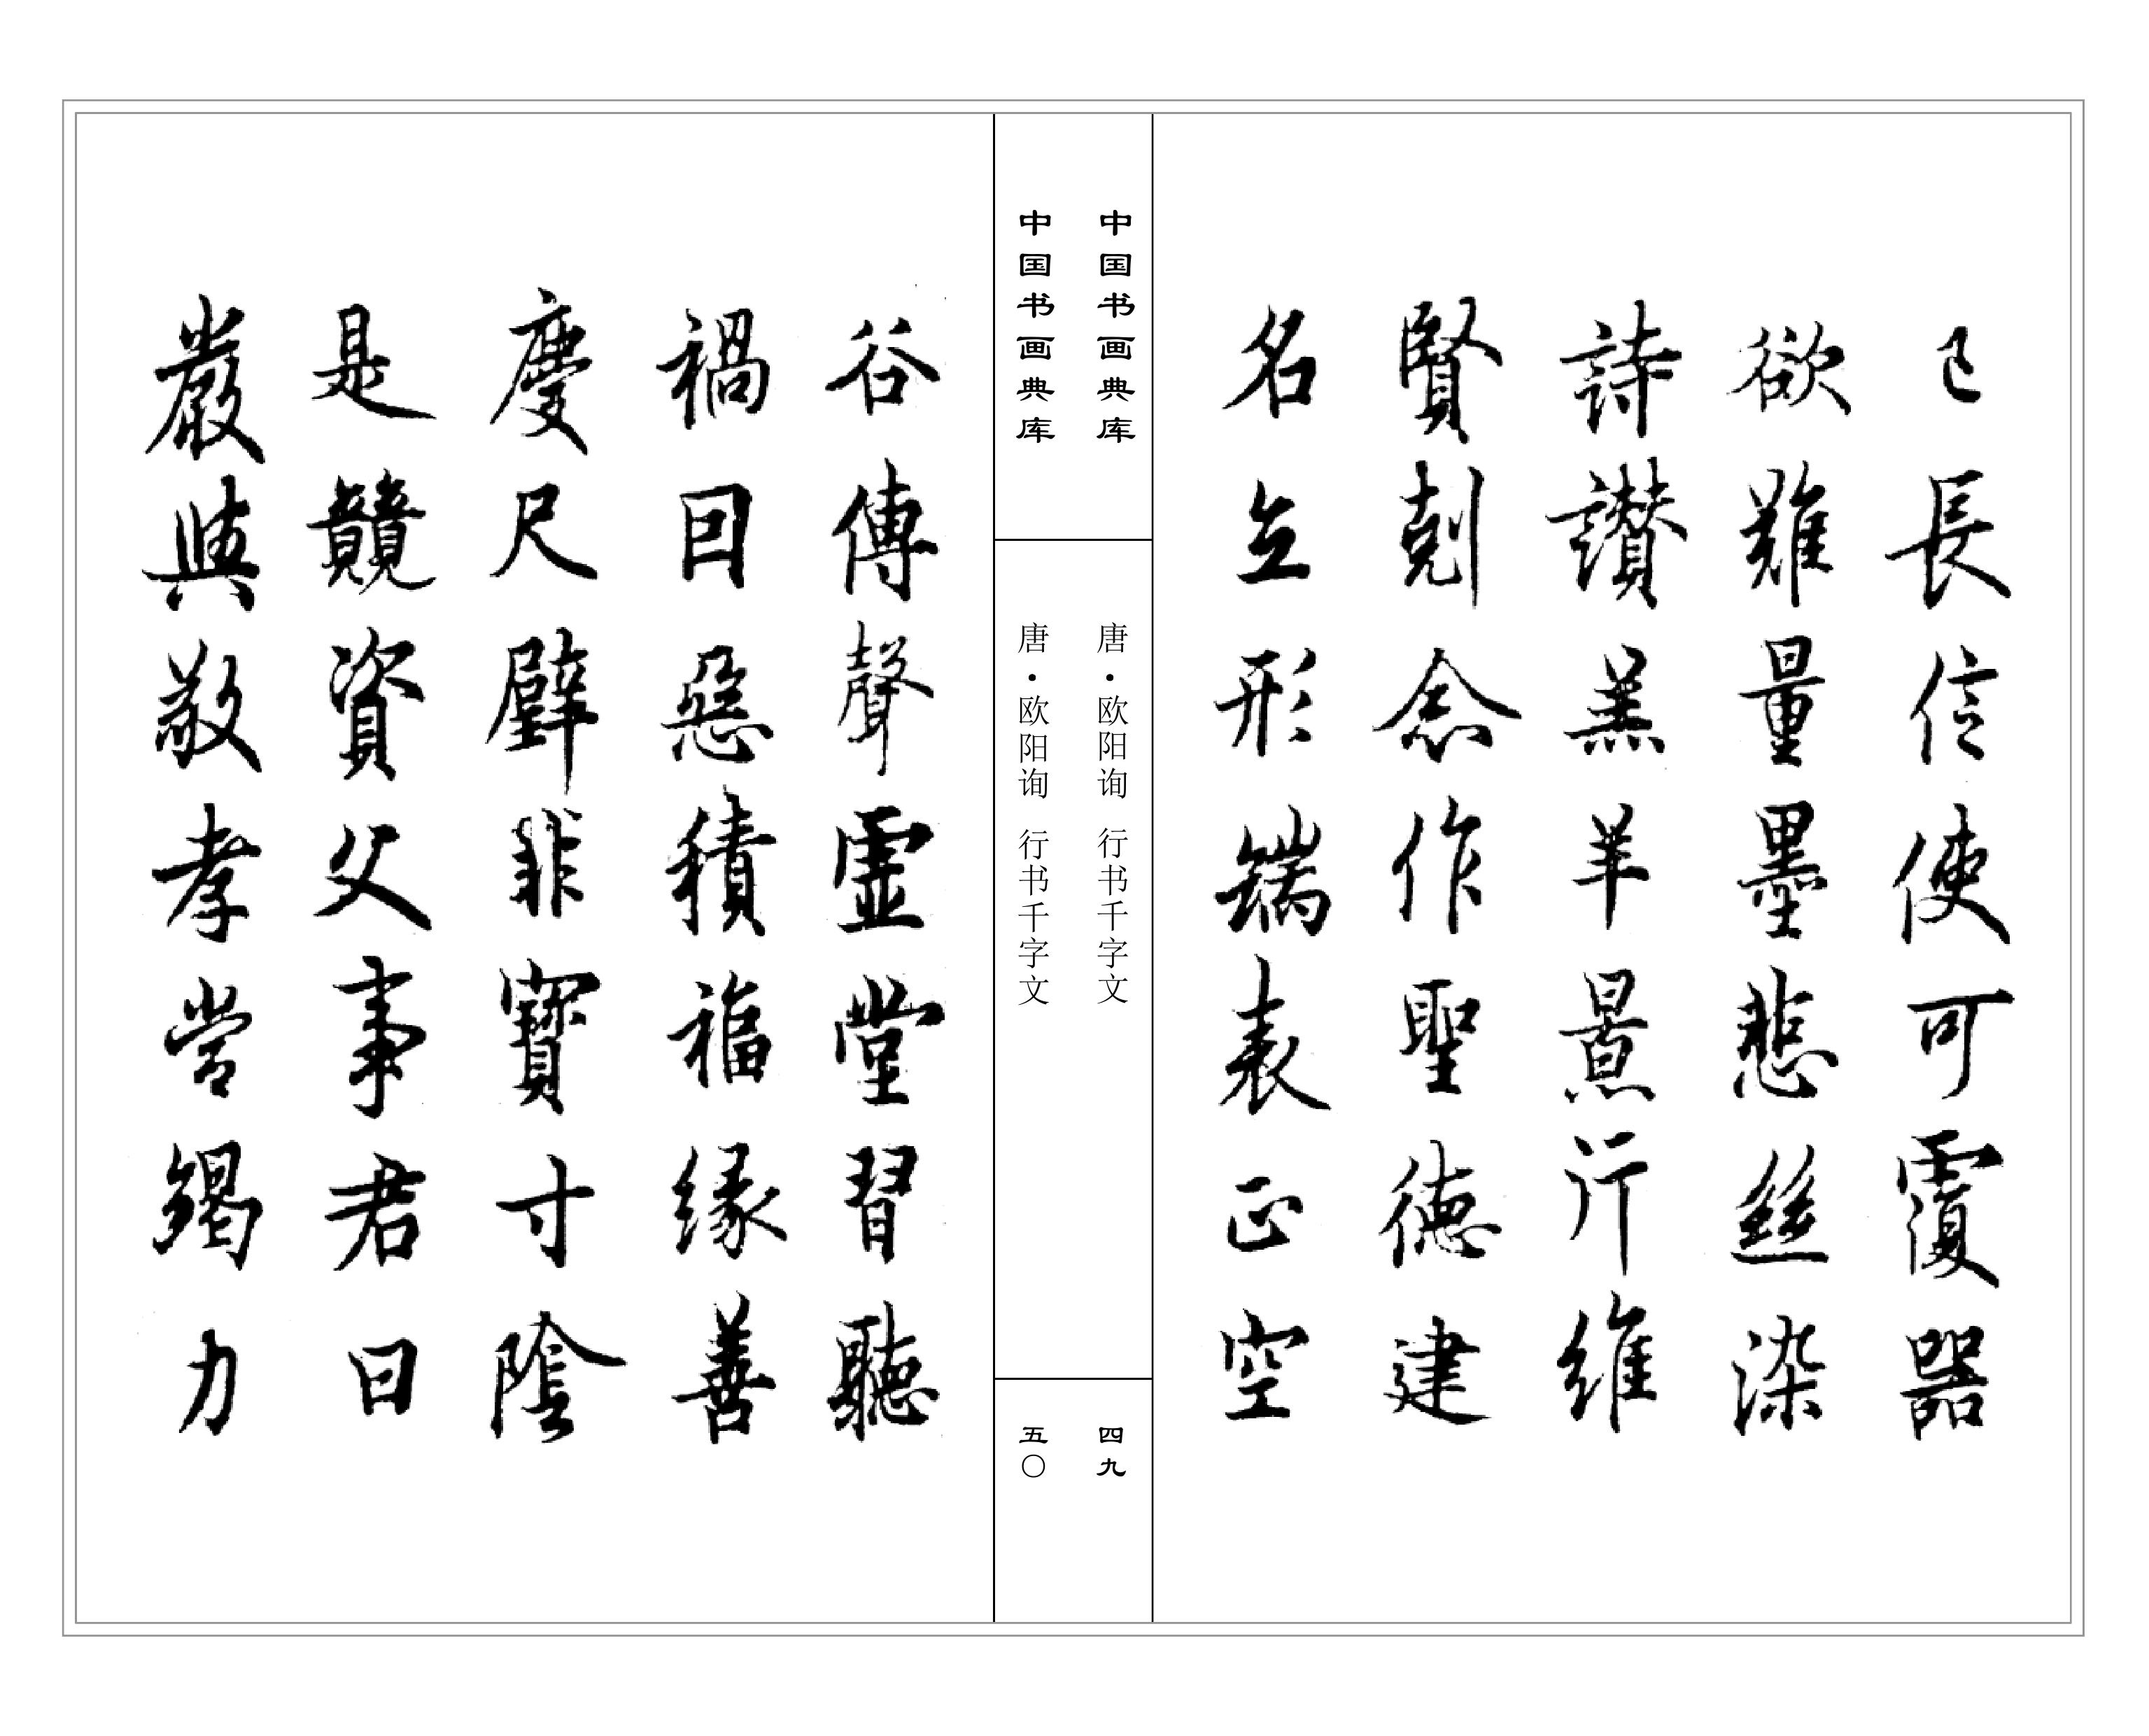 已長信使可覆器
欲難量墨悲絲染
詩讚羔羊景行維
賢剋念作聖德建
名立形端表正空
中国书画典库
唐·欧阳询 行书千字文
四九
中国书画典库
唐·欧阳询 行书千字文
五〇
谷傳聲虛堂習聽
禍因惡積福緣善
慶尺璧非寶寸陰
是競資父事君曰
嚴與敬孝當竭力